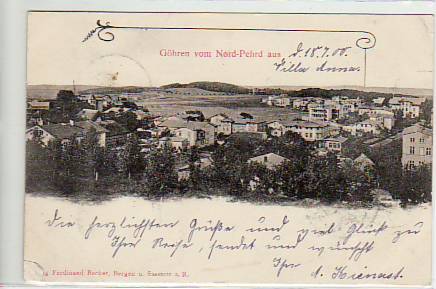 Göhren vom Nord-Pehrd aus
d. 15.7.00.
Villa Anna.
die herzlichsten Grüße und viel Glück zu
Ihrer Reise, sendet und wünscht
Ihr
d. Kienast.
Ferdinand Becker, Bergen u. Sassnitz a. R.